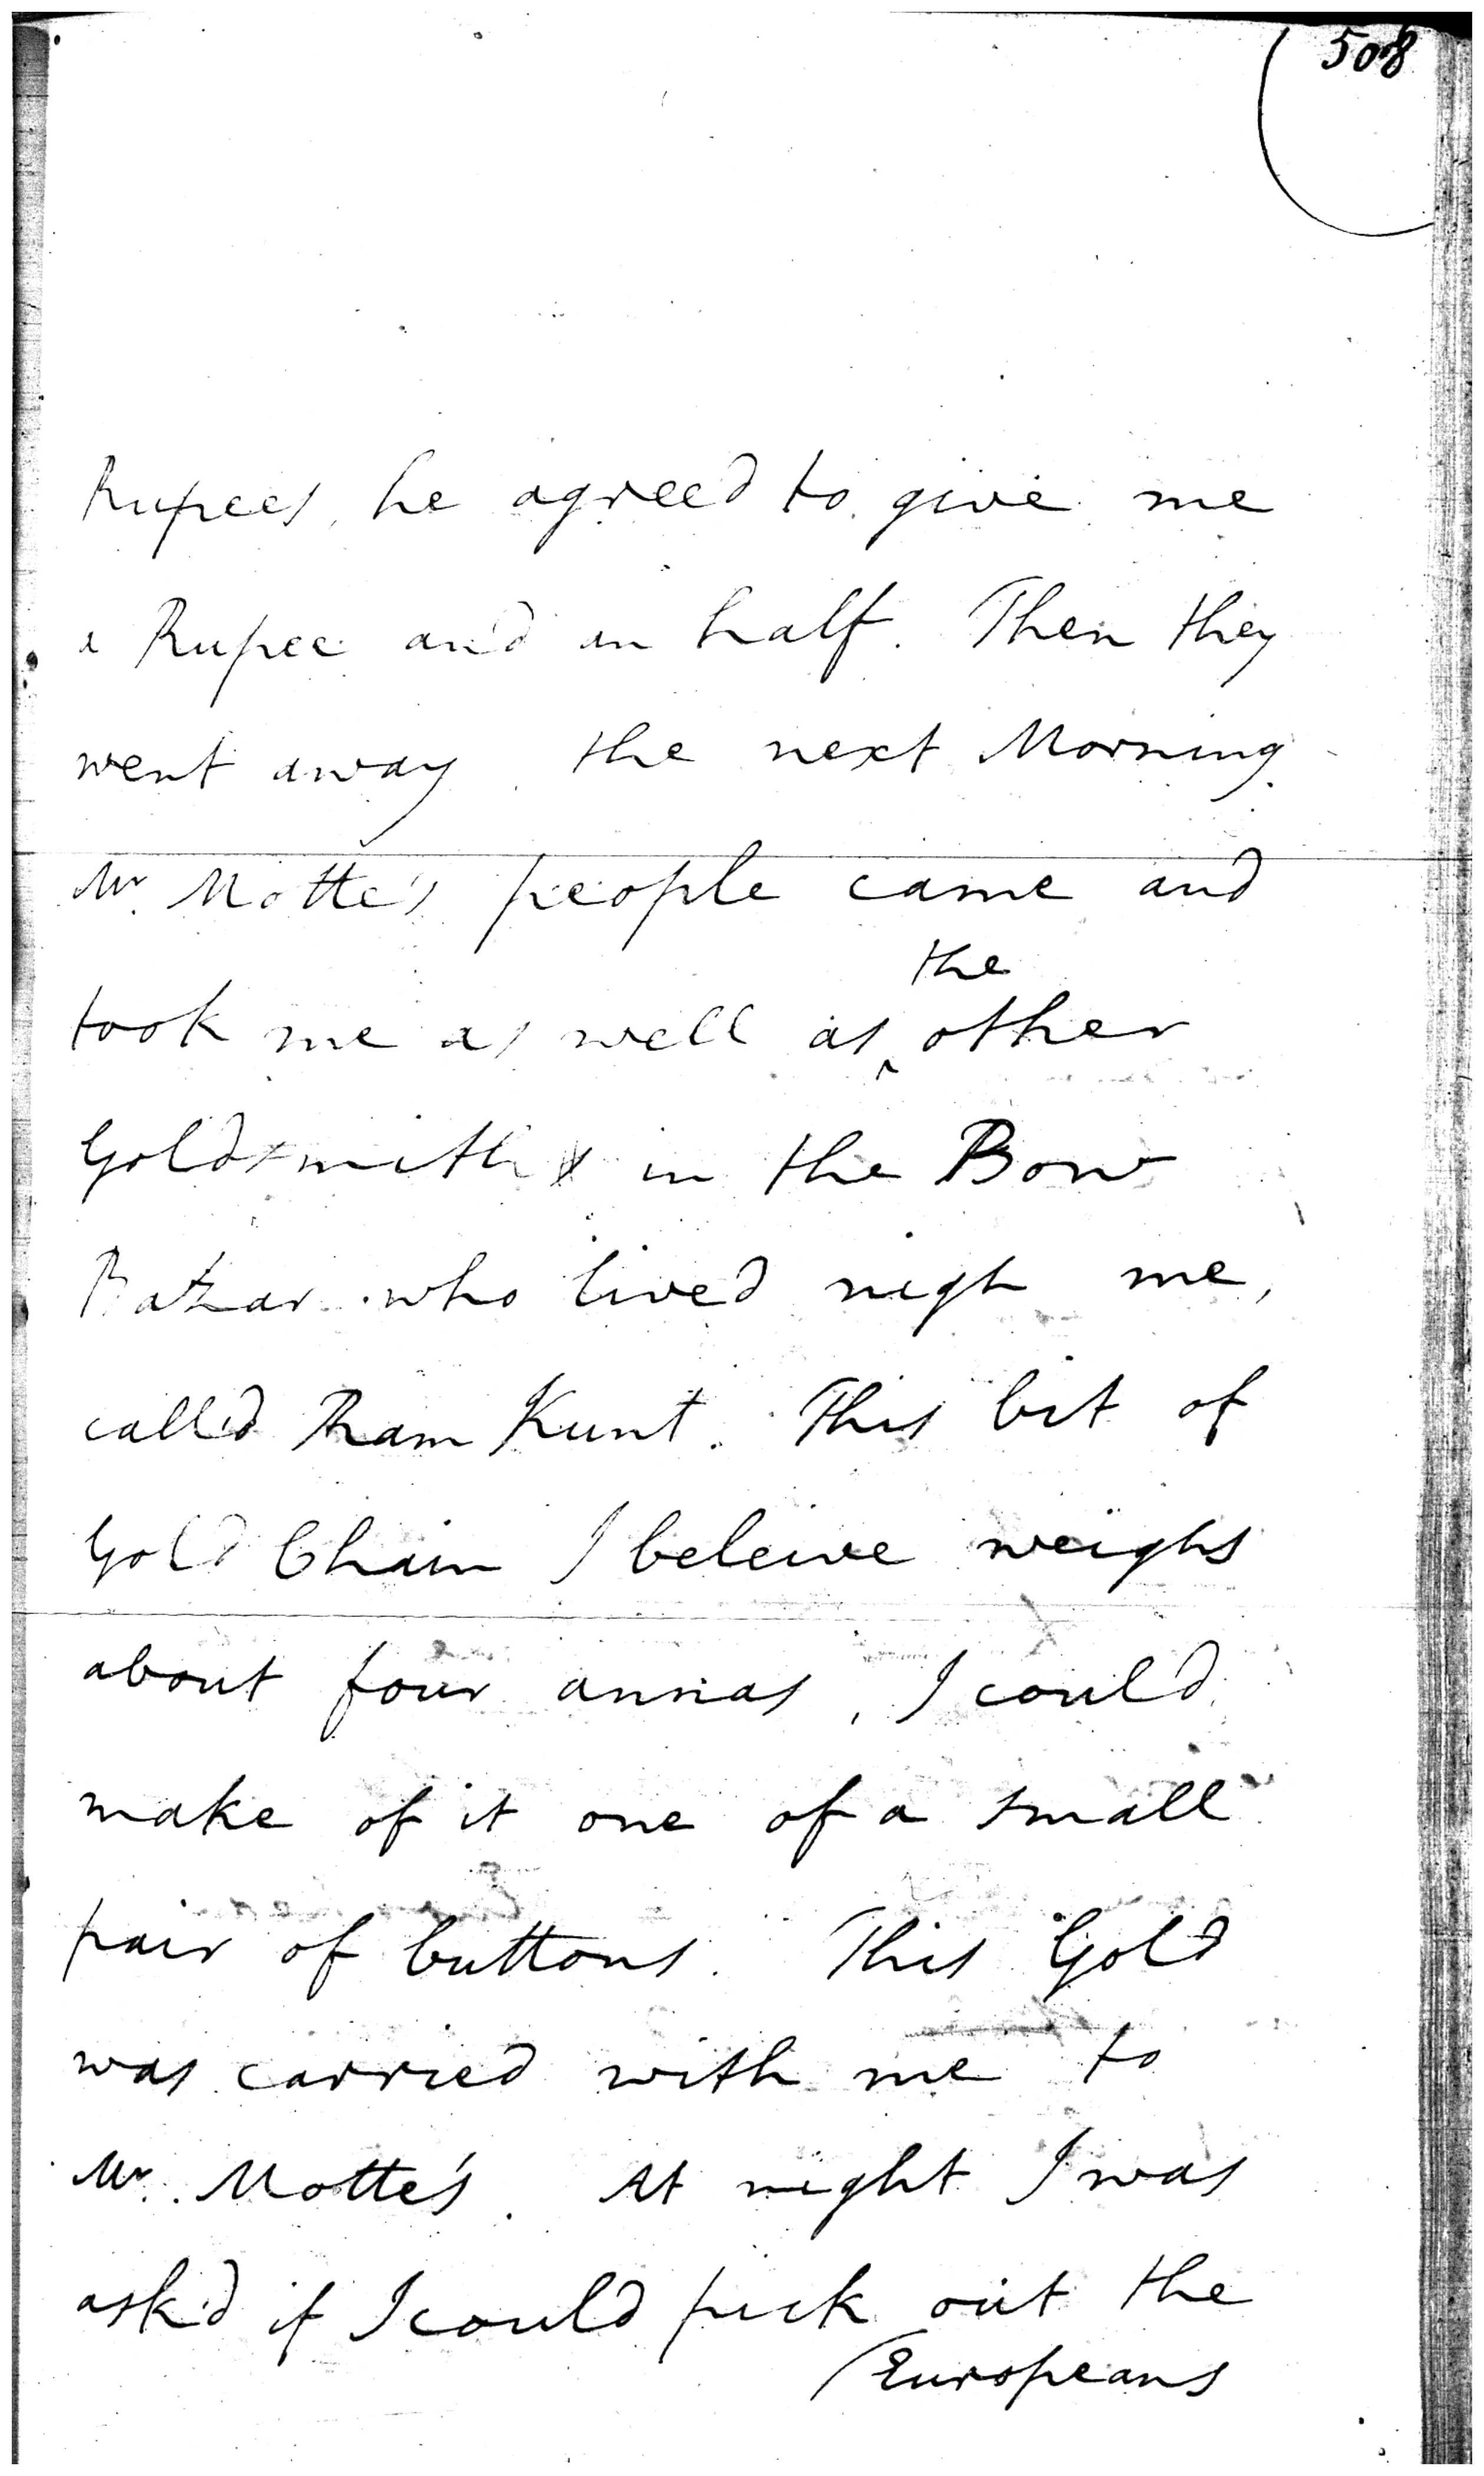 508
Rupees, he agreed to give me
a Rupee and an half. Then they
went away. the next Morning
Mr. Motte's people came and
the
took me as well as ^ other
Goldsmith in the Bow
Bazar who lived nigh me,
call'd Ram Kunt. This bit of
Gold Chain I beleive weighs
about four annas, I could
make of it one of a small
pair of buttons. This Gold
was carried with me to
Mr. Motte's. At night I was
ask'd if I could pick out the
Europeans